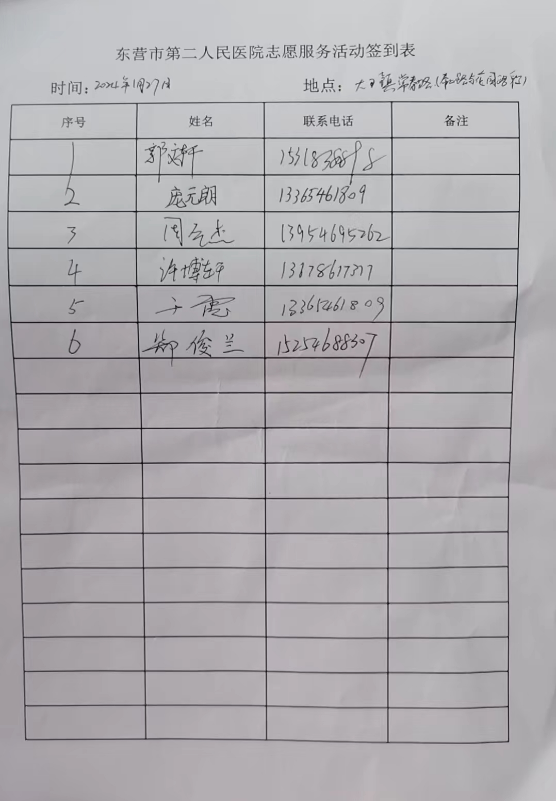 东营市第二人民医院志愿服务活动签到表
时间：2024年1月27日 地点：大王镇常春路
序号 姓名 联系电话 备注
1 郭文轩
2 庞元朗 13365461809
3 周元杰 13954695262
4 许博轩
5 于霞 13365461809
6 郑俊兰 15254688307